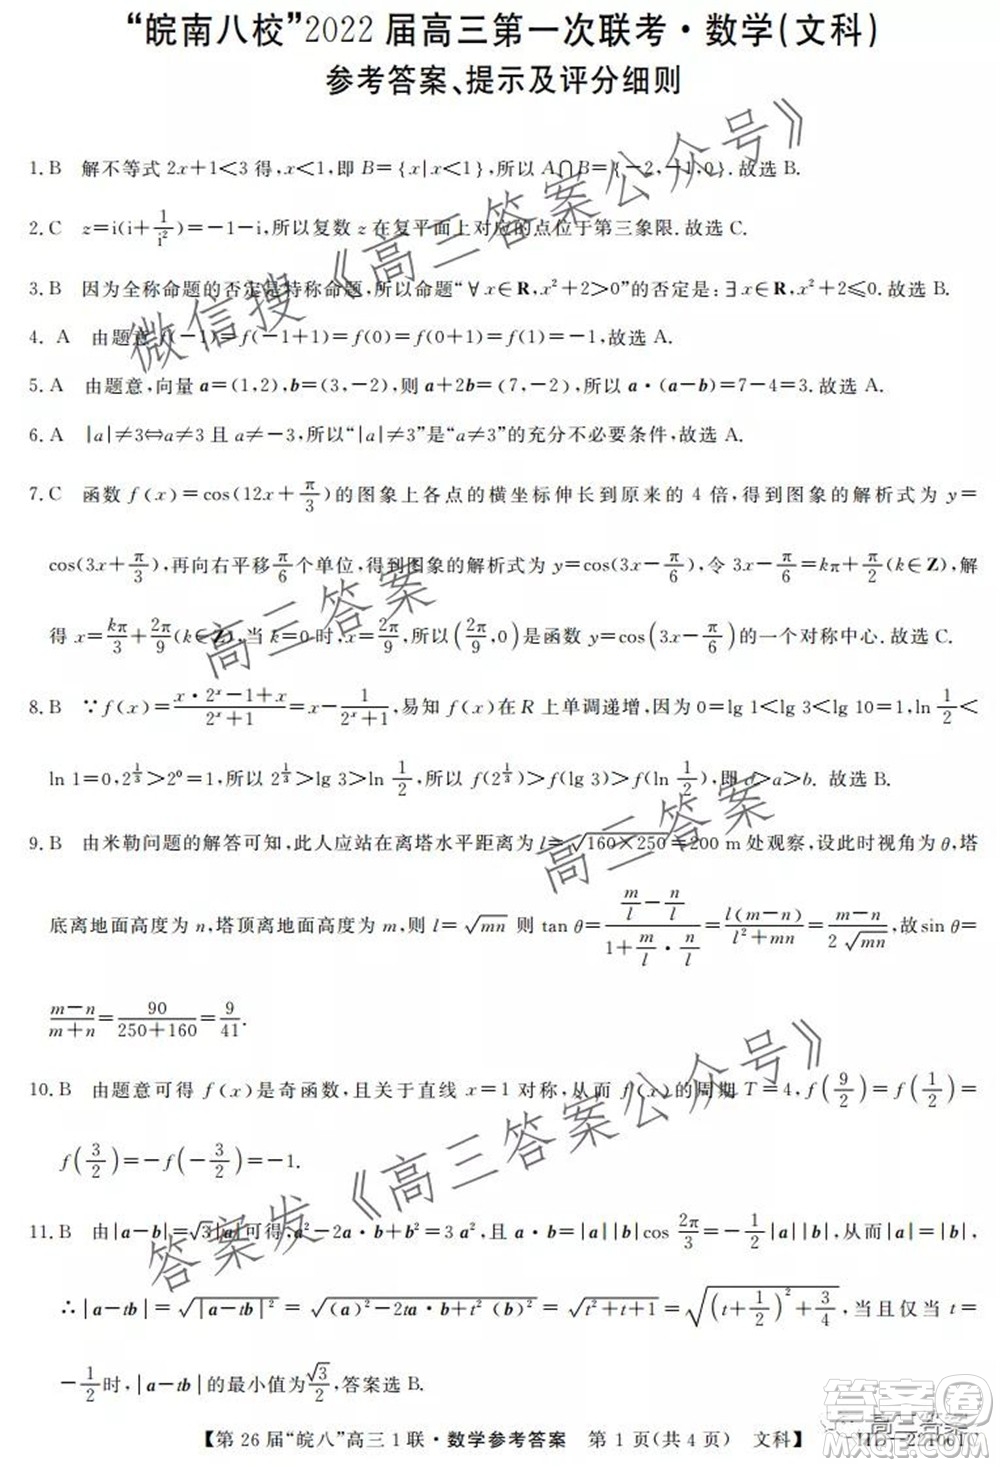 “皖南八校”2022届高三第一次联考·数学(文科)
参考答案、提示及评分细则
1. B 解不等式 2x+1<3 得,x<1,即 B={x|x<1},所以 A∩B={-2,-1,0}.故选 B.
2. C z=i(i+1/i²)=-1-i,所以复数 z 在复平面上对应的点位于第三象限.故选 C.
3. B 因为全称命题的否定是特称命题,所以命题“∀x∈R,x²+2>0”的否定是:∃x∈R,x²+2≤0.故选 B.
4. A 由题意 f(-1)=f(-1+1)=f(0)=f(0+1)=f(1),故选 A.
5. A 由题意,向量 a=(1,2),b=(3,-2),则 a+2b=(7,-2),所以 a·(a-b)=7-4=3.故选 A.
6. A |a|≠3⇔a≠3 且 a≠-3,所以“|a|≠3”是“a≠3”的充分不必要条件,故选 A.
7. C 函数 f(x)=cos(12x+π/3)的图象上各点的横坐标伸长到原来的 4 倍,得到图象的解析式为 y=
cos(3x+π/3),再向右平移π/6个单位,得到图象的解析式为 y=cos(3x-π/6),令 3x-π/6=kπ+π/2(k∈Z),解
得 x=kπ/3+2π/9(k∈Z),当 k=0 时,x=2π/9,所以(2π/9,0)是函数 y=cos(3x-π/6)的一个对称中心.故选 C.
8. B ∵f(x)=(x·2ˣ-1+x)/(2ˣ+1)=x-1/(2ˣ+1),易知 f(x)在 R 上单调递增,因为 0=lg 1<lg 3<lg 10=1,ln 1/2<
ln 1=0,2^(1/3)>2⁰=1,所以 2^(1/3)>lg 3>ln 1/2,所以 f(2^(1/3))>f(lg 3)>f(ln 1/2),即 c>a>b. 故选 B.
9. B 由米勒问题的解答可知,此人应站在离塔水平距离为 l=√(160×250)=200 m处观察,设此时视角为θ,塔
底离地面高度为 n,塔顶离地面高度为 m,则 l=√(mn) 则 tan θ=(m/l-n/l)/(1+m/l·n/l)=l(m-n)/(l²+mn)=(m-n)/(2√(mn)),故sin θ=
(m-n)/(m+n)=90/(250+160)=9/41.
10. B 由题意可得 f(x)是奇函数,且关于直线 x=1 对称,从而 f(x)的周期 T=4,f(9/2)=f(1/2)=
f(3/2)=-f(-3/2)=-1.
11. B 由|a-b|=√3|a|可得,a²-2a·b+b²=3a²,且 a·b=|a||b|cos 2π/3=-1/2|a||b|,从而|a|=|b|,
∴|a-tb|=√(|a-tb|²)=√((a)²-2ta·b+t²(b)²)=√(t²+t+1)=√((t+1/2)²+3/4),当且仅当 t=
-1/2时,|a-tb|的最小值为√3/2,答案选 B.
【第 26 届“皖八”高三 1 联·数学参考答案 第 1 页(共 4 页) 文科】
微信搜《高三答案公众号》
高三答案
高三答案
答案发《高三答案公众号》
高三答案